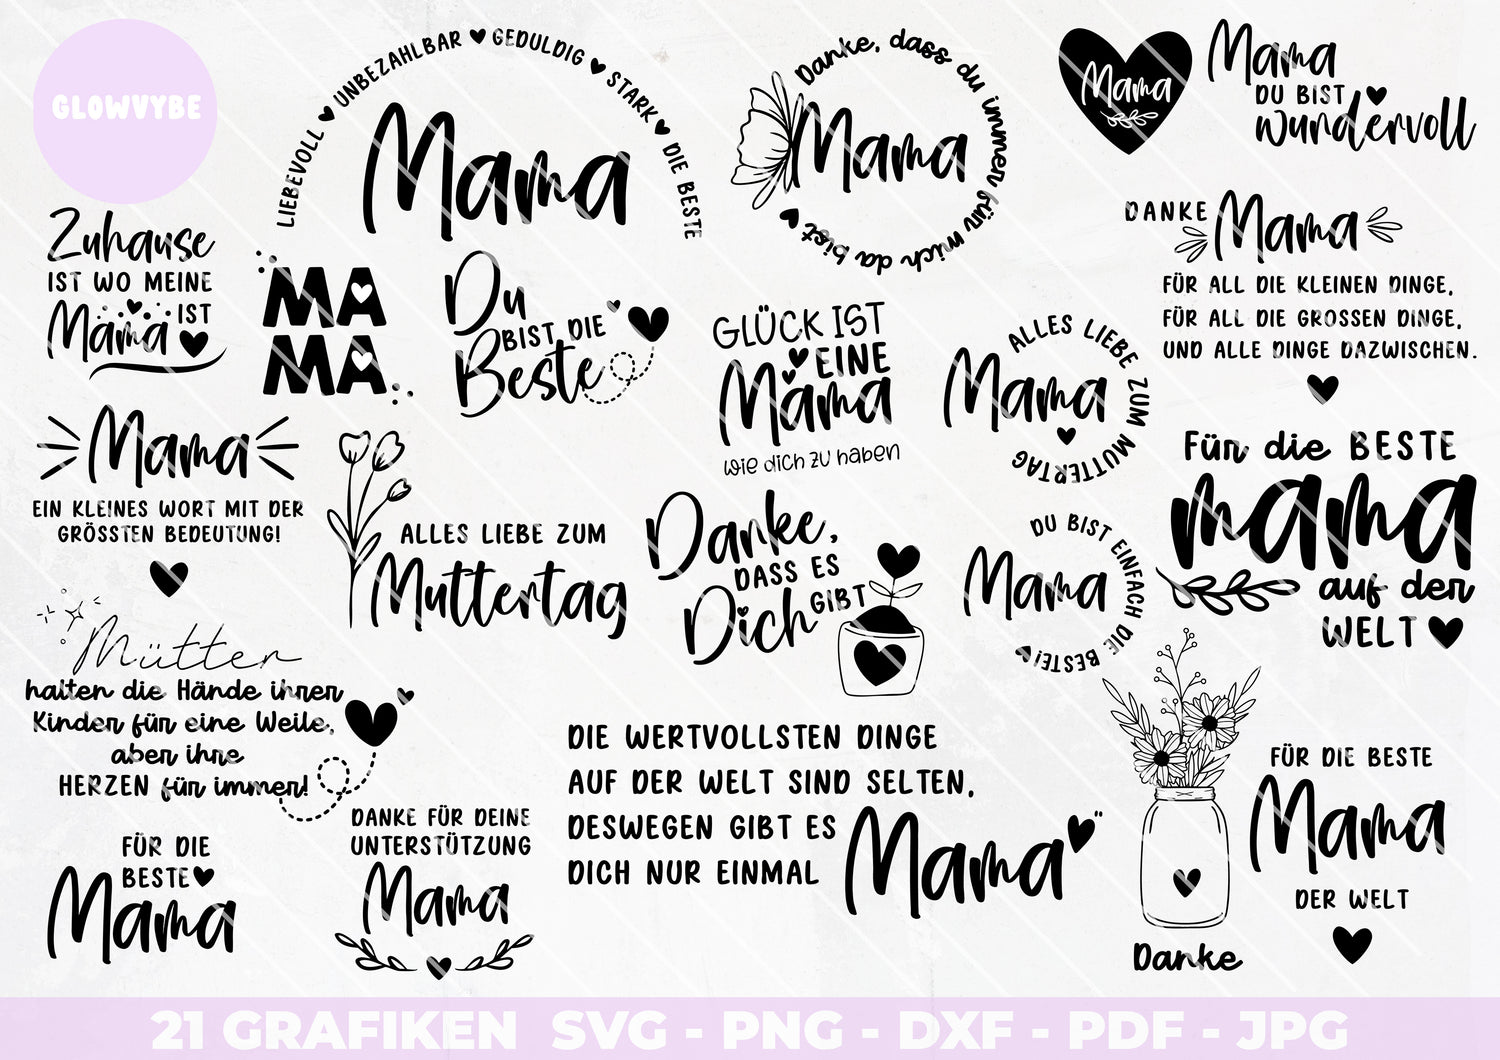 GLOWVYBE
LIEBEVOLL UNBEZAHLBAR GEDULDIG STARK DIE BESTE
Mama
Danke, dass du immer für mich da bist
Mama
Mama
Mama
DU BIST
wundervoll
Zuhause
IST WO MEINE
Mama IST
MA
MA
Du
BIST DIE
Beste
GLÜCK IST
EINE
Mama
wie dich zu haben
ALLES LIEBE ZUM MUTTERTAG
Mama
DANKE Mama
FÜR ALL DIE KLEINEN DINGE,
FÜR ALL DIE GROSSEN DINGE,
UND ALLE DINGE DAZWISCHEN.
Mama
EIN KLEINES WORT MIT DER
GRÖSSTEN BEDEUTUNG!
ALLES LIEBE ZUM
Muttertag
Danke,
DASS ES
Dich GIBT
DU BIST EINFACH DIE BESTE!
Mama
Für die BESTE
mama
auf der
WELT
Mütter
halten die Hände ihrer
Kinder für eine Weile,
aber ihre
HERZEN für immer!
FÜR DIE
BESTE
Mama
DANKE FÜR DEINE
UNTERSTÜTZUNG
Mama
DIE WERTVOLLSTEN DINGE
AUF DER WELT SIND SELTEN,
DESWEGEN GIBT ES
DICH NUR EINMAL Mama
Danke
FÜR DIE BESTE
Mama
DER WELT
21 GRAFIKEN SVG - PNG - DXF - PDF - JPG